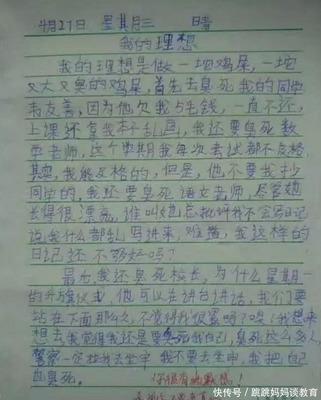 4月27日 星其月三 日晴
我的理想
我的理想是做一坨鸡屎,一坨
又大又臭的鸡屎,首先去臭死我的同学
韦友善,因为他欠我5毛钱,一直不还,
上课还在我本子乱画,我还要臭死数
学老师,这个学期我每次考试都不及格,
其实,我能及格的,但是,他不要我抄
同学的,我还要臭死语文老师,尽管她
长得很漂亮,谁叫她总批评我不会写日记
说我什么都乱写进来,难道,我这样的
日记还不够好吗?
最后,我还臭死校长,为什么星期一
的升旗仪式,他可以在讲台讲话,我们要
站在下面那么久,不觉得我很累吗?哎!我想来
想去我觉得我还是要臭死我自己,臭死这么多人
警察一定抓我去坐牢,我不要去坐牢,我把自己
臭死。
你很有地歌想!
快传号 / 跳跳妈妈谈教育